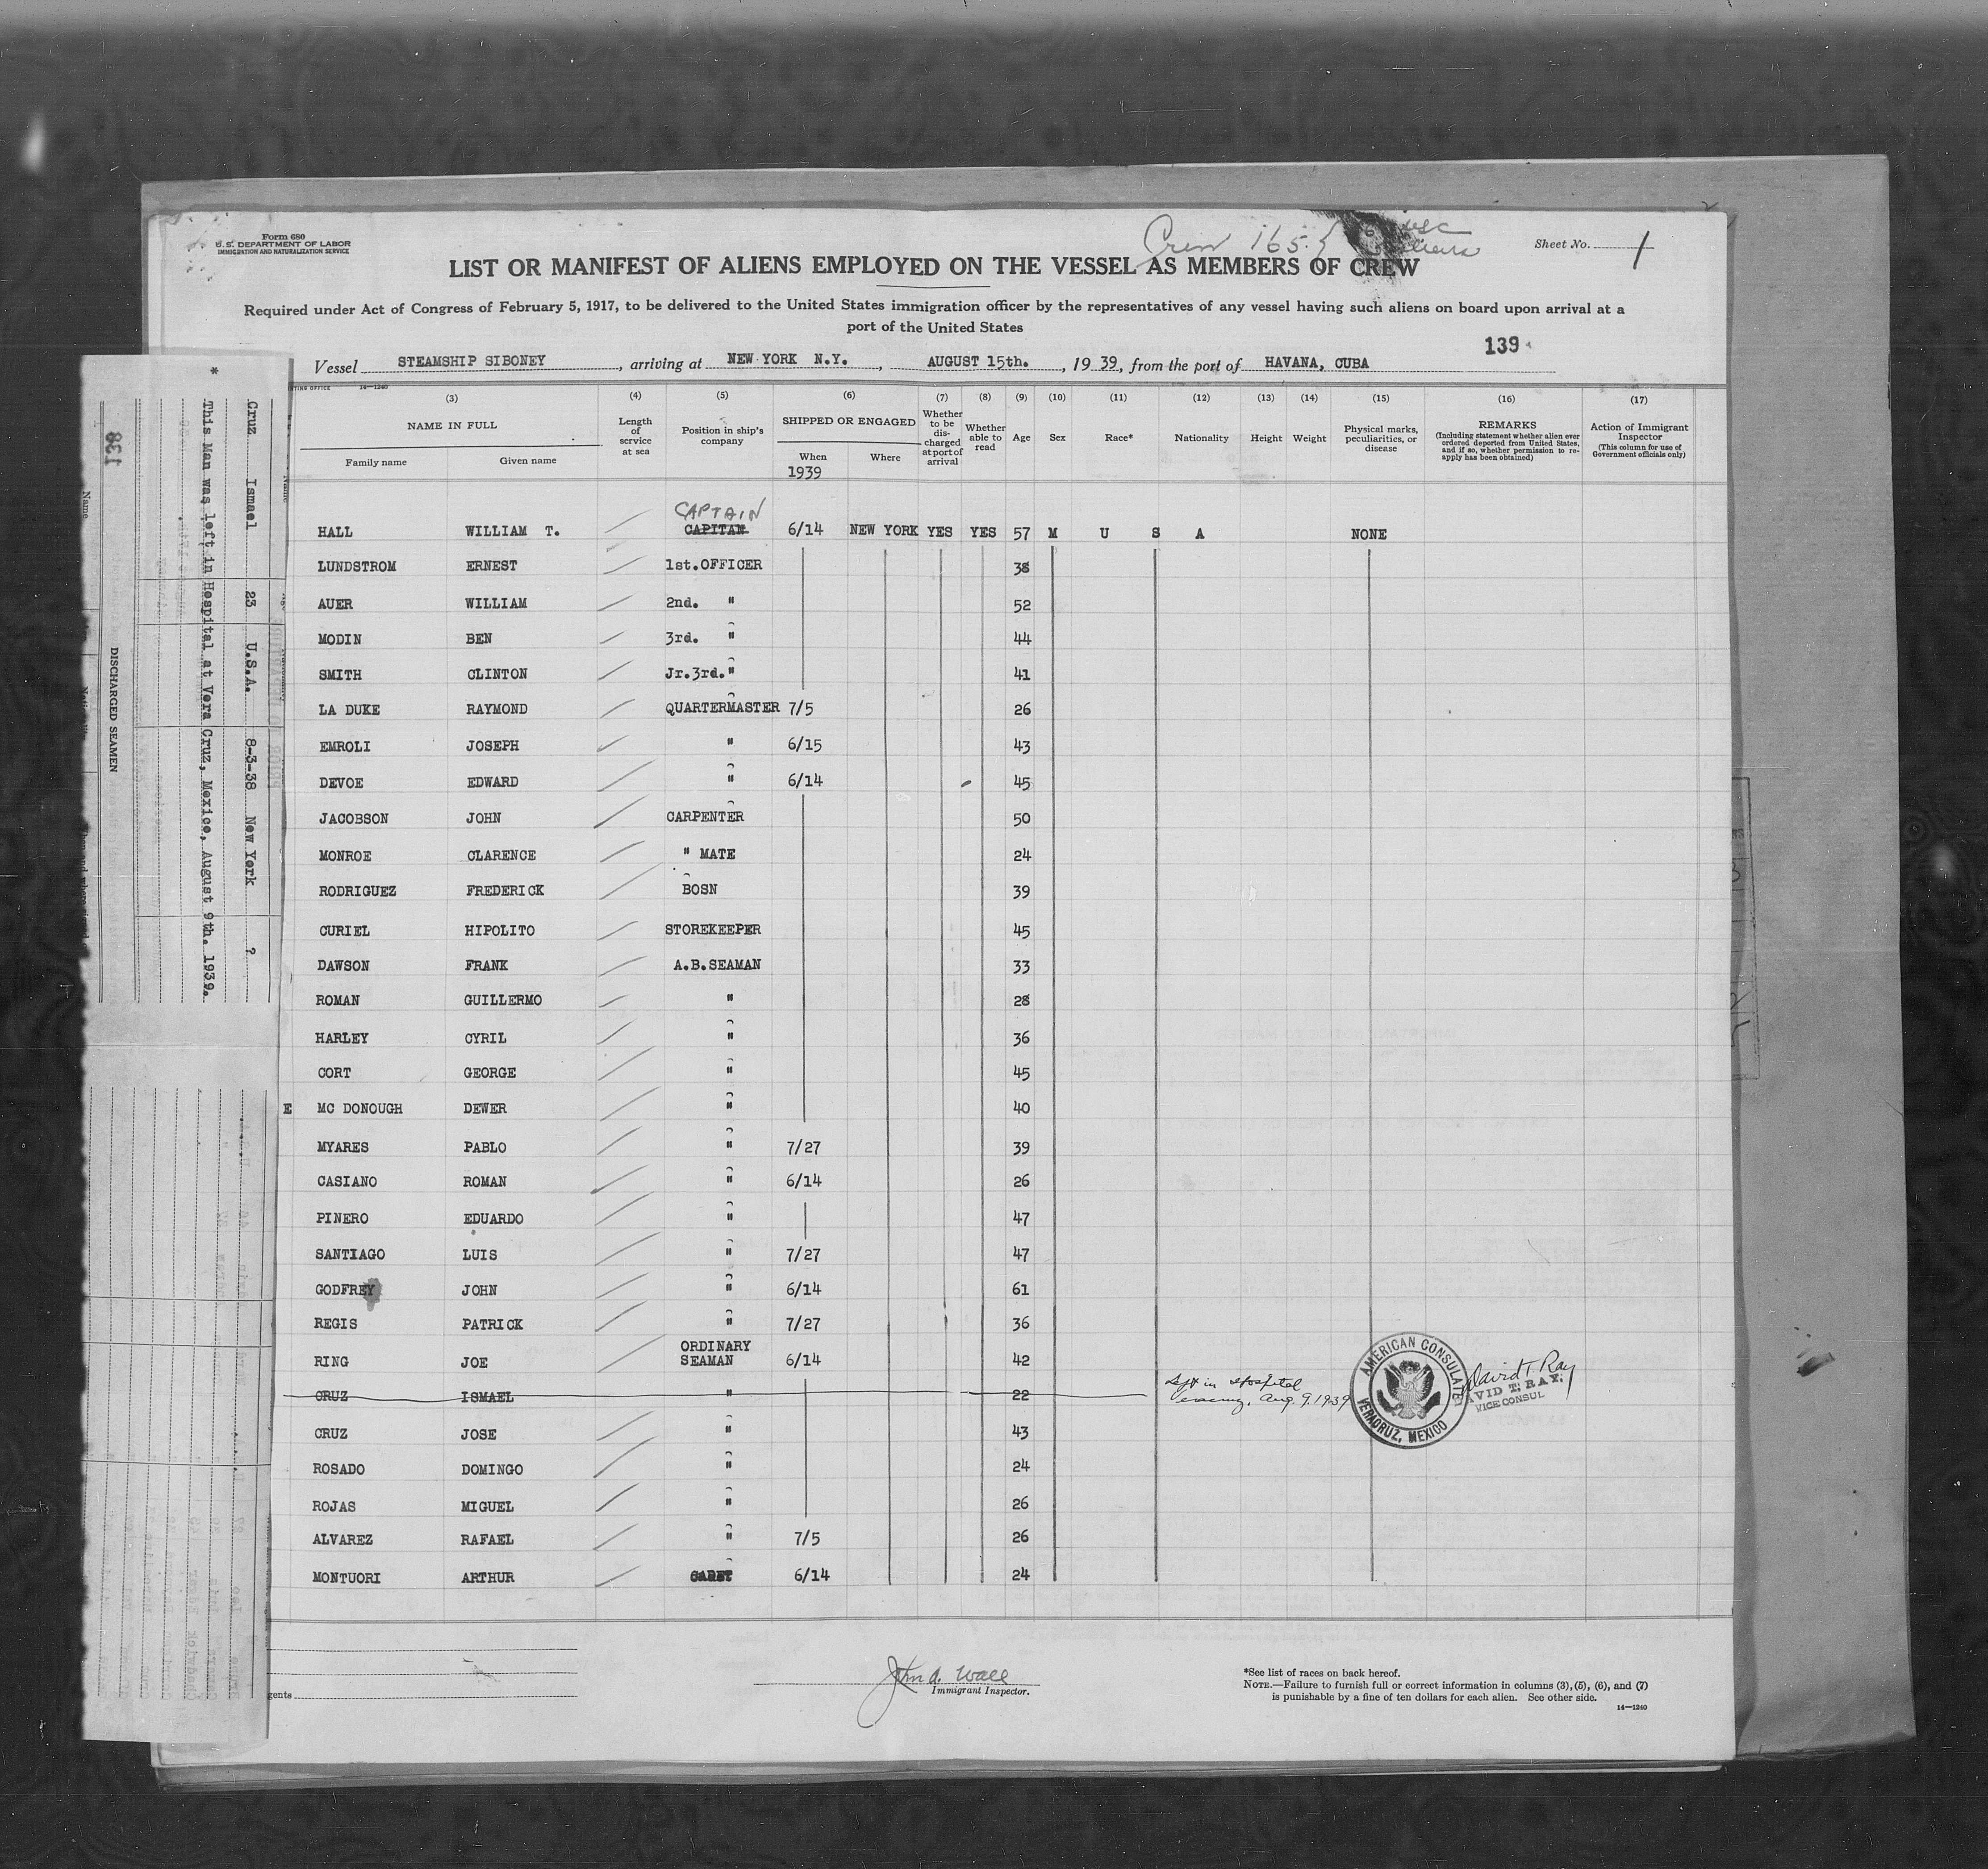 Form 680
U. S. DEPARTMENT OF LABOR
IMMIGRATION AND NATURALIZATION SERVICE
Crew 165
Sheet No. 1
LIST OR MANIFEST OF ALIENS EMPLOYED ON THE VESSEL AS MEMBERS OF CREW
Required under Act of Congress of February 5, 1917, to be delivered to the United States immigration officer by the representatives of any vessel having such aliens on board upon arrival at a
port of the United States
139
Vessel STEAMSHIP SIBONEY, arriving at NEW YORK N.Y., AUGUST 15th., 1939, from the port of HAVANA, CUBA
14—1240
(3) (4) (5) (6) (7) (8) (9) (10) (11) (12) (13) (14) (15) (16) (17)
NAME IN FULL
Family name Given name
Length of service at sea
Position in ship's company
SHIPPED OR ENGAGED
When Where
1939
Whether to be discharged at port of arrival
Whether able to read
Age Sex Race* Nationality Height Weight
Physical marks, peculiarities, or disease
REMARKS
(Including statement whether alien ever ordered deported from United States, and if so, whether permission to reapply has been obtained)
Action of Immigrant Inspector
(This column for use of Government officials only)
CAPTAIN
HALL WILLIAM T. CAPITAN 6/14 NEW YORK YES YES 57 M U S A NONE
LUNDSTROM ERNEST 1st.OFFICER 38
AUER WILLIAM 2nd. " 52
MODIN BEN 3rd. " 44
SMITH CLINTON Jr.3rd." 41
LA DUKE RAYMOND QUARTERMASTER 7/5 26
EMROLI JOSEPH " 6/15 43
DEVOE EDWARD " 6/14 45
JACOBSON JOHN CARPENTER 50
MONROE CLARENCE " MATE 24
RODRIGUEZ FREDERICK BOSN 39
CURIEL HIPOLITO STOREKEEPER 45
DAWSON FRANK A.B.SEAMAN 33
ROMAN GUILLERMO " 28
HARLEY CYRIL " 36
CORT GEORGE " 45
E MC DONOUGH DEWER " 40
MYARES PABLO " 7/27 39
CASIANO ROMAN " 6/14 26
PINERO EDUARDO " 47
SANTIAGO LUIS " 7/27 47
GODFREY JOHN " 6/14 61
REGIS PATRICK " 7/27 36
RING JOE ORDINARY SEAMAN 6/14 42
CRUZ ISMAEL " 22 Left in Hospital
Veracruz, Aug 9, 1939
CRUZ JOSE " 43
ROSADO DOMINGO " 24
ROJAS MIGUEL " 26
ALVAREZ RAFAEL " 7/5 26
MONTUORI ARTHUR CADET 6/14 24
AMERICAN CONSULATE
VERACRUZ, MEXICO
David T. Ray
DAVID T. RAY.
VICE CONSUL
John A. Wall
Immigrant Inspector.
*See list of races on back hereof.
NOTE.—Failure to furnish full or correct information in columns (3), (5), (6), and (7)
is punishable by a fine of ten dollars for each alien. See other side.
14—1240
gents
*
This Man was left in Hospital at Vera Cruz, Mexico, August 9th. 1939.
Cruz Ismael 23 U.S.A. 8-3-38 New York ?
138
DISCHARGED SEAMEN
Name